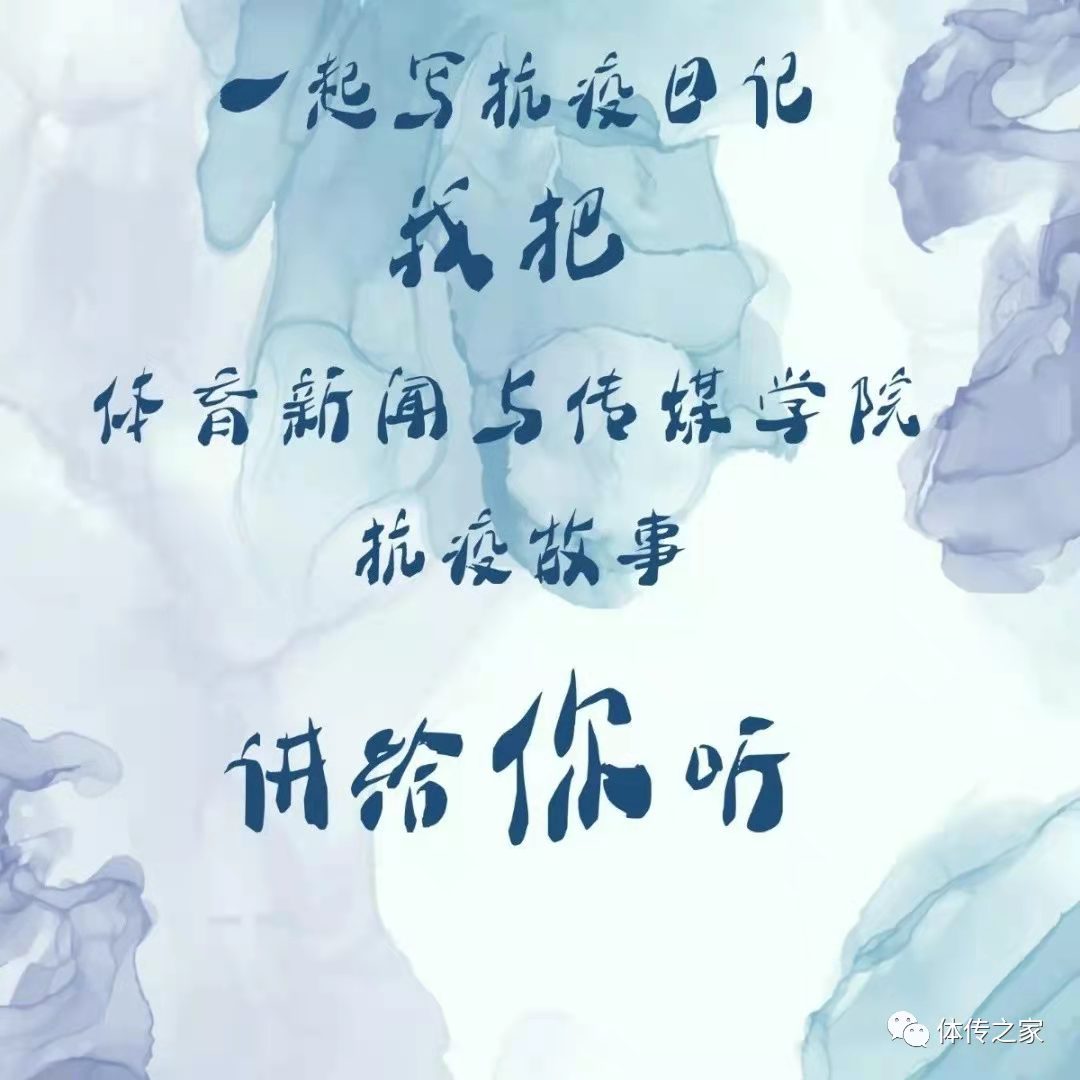 一起写抗疫日记
我把
体育新闻与传媒学院
抗疫故事
讲给你听
体传之家